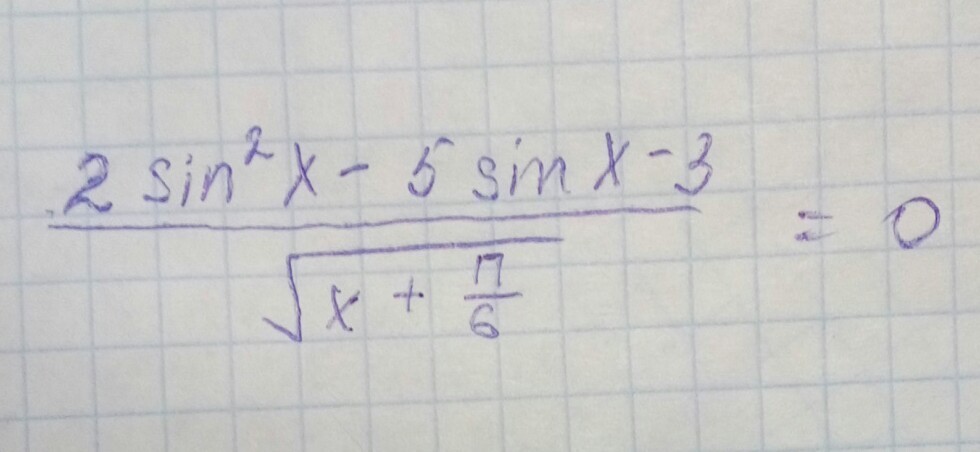 2 sin² x - 5 sin x - 3
= 0
√x + π
6